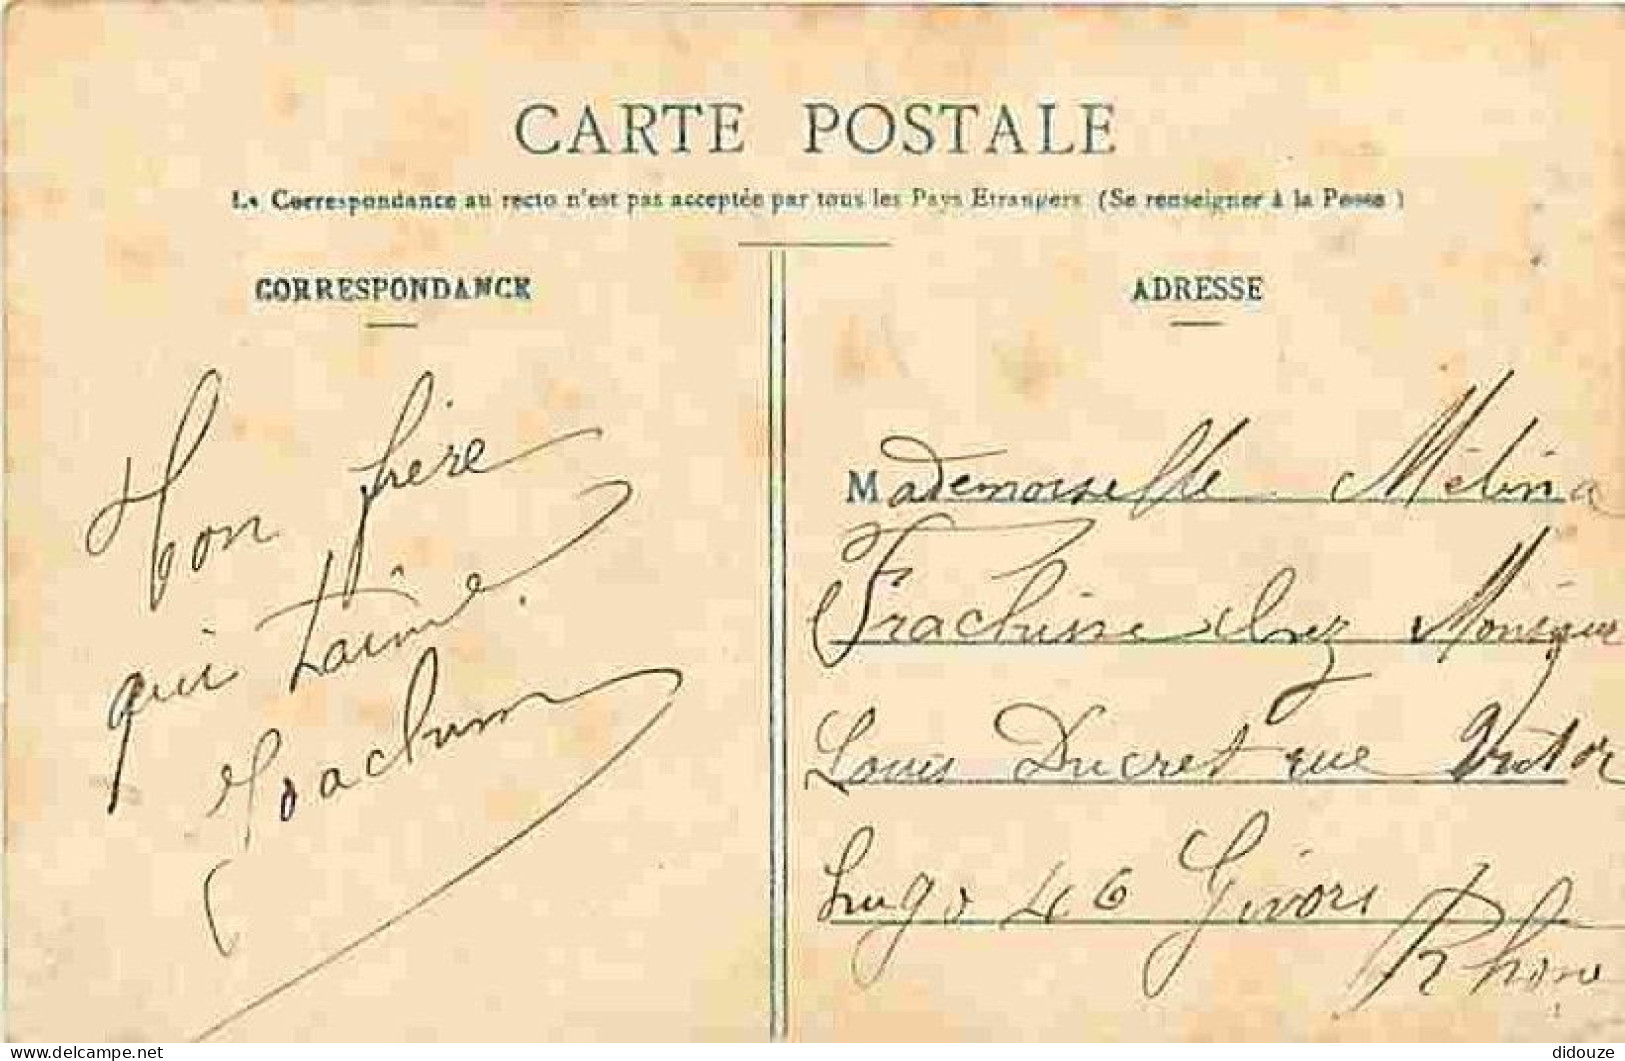 CARTE POSTALE
La Correspondance au recto n'est pas acceptée par tous les Pays Etrangers (Se renseigner à la Poste)
CORRESPONDANCE
Mon frère
qui t'aime.
ADRESSE
Mademoiselle Mélina
chez
Louis Ducret rue Victor
hugo 46 Givors
Rhône
www.delcampe.net
didouze